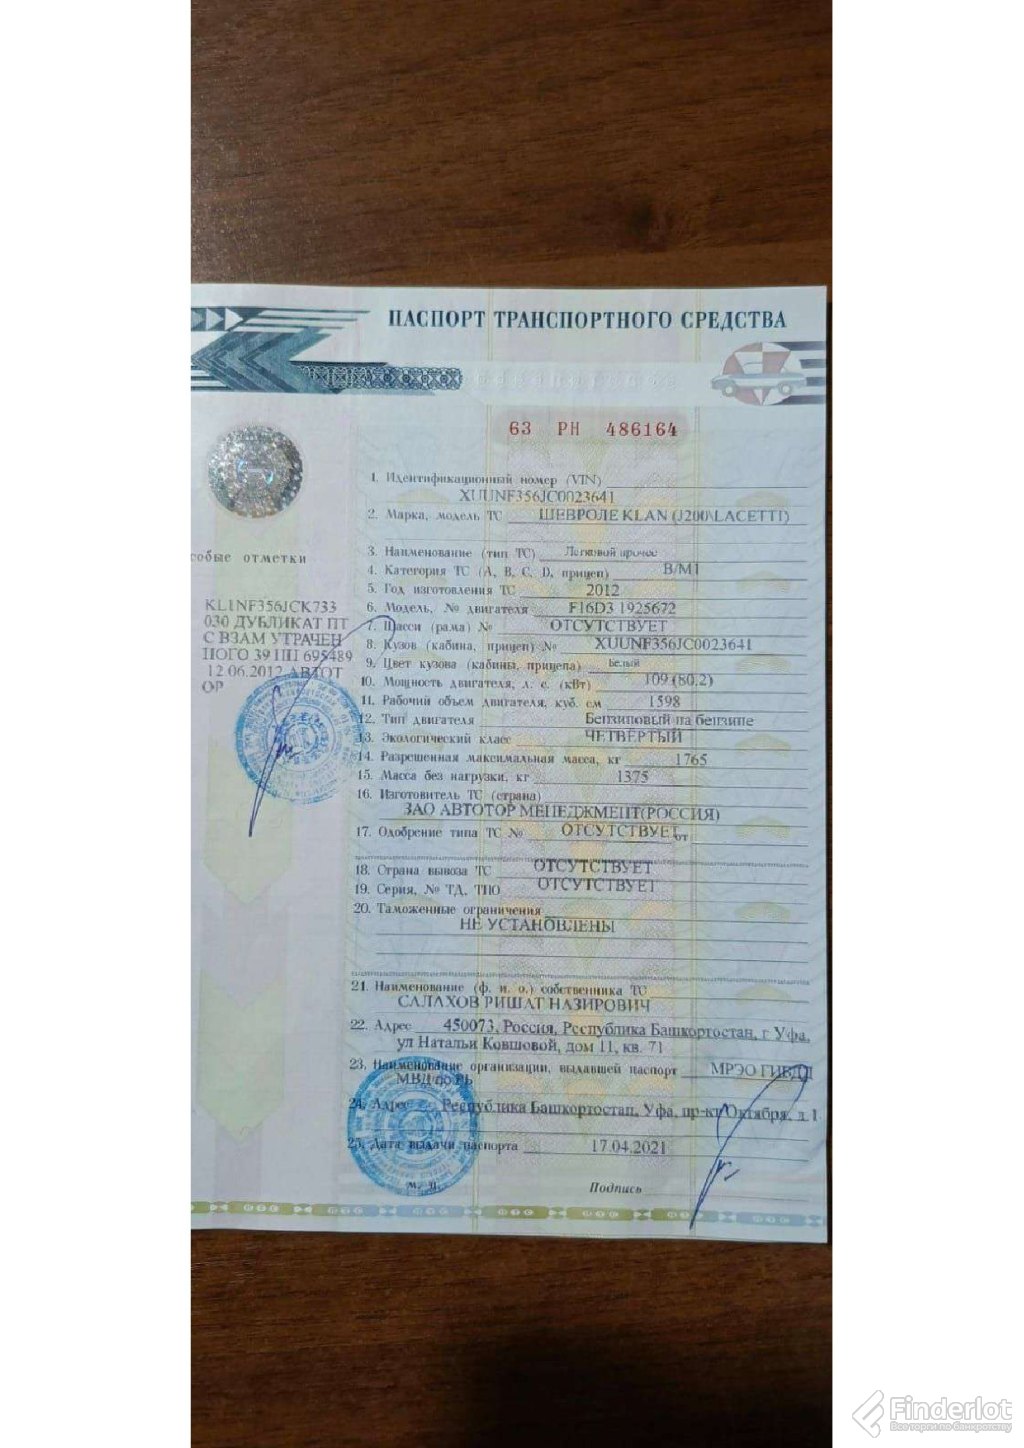 ПАСПОРТ ТРАНСПОРТНОГО СРЕДСТВА
63 РН 486164
1. Идентификационный номер (VIN)
XUUNF356JC0023641
2. Марка, модель ТС ШЕВРОЛЕ KLAN (J200\LACETTI)
3. Наименование (тип ТС) Легковой прочее
4. Категория ТС (А, В, С, D, прицеп) B/M1
5. Год изготовления ТС 2012
6. Модель, № двигателя F16D3 1925672
7. Шасси (рама) № ОТСУТСТВУЕТ
8. Кузов (кабина, прицеп) № XUUNF356JC0023641
9. Цвет кузова (кабины, прицепа) Белый
10. Мощность двигателя, л. с. (кВт) 109 (80.2)
11. Рабочий объем двигателя, куб. см 1598
12. Тип двигателя Бензиновый на бензине
13. Экологический класс ЧЕТВЕРТЫЙ
14. Разрешенная максимальная масса, кг 1765
15. Масса без нагрузки, кг 1375
16. Изготовитель ТС (страна)
ЗАО АВТОТОР МЕНЕДЖМЕНТ(РОССИЯ)
17. Одобрение типа ТС № ОТСУТСТВУЕТ от
18. Страна вывоза ТС ОТСУТСТВУЕТ
19. Серия, № ТД, ТПО ОТСУТСТВУЕТ
20. Таможенные ограничения
НЕ УСТАНОВЛЕНЫ
21. Наименование (ф. и. о.) собственника ТС
САЛАХОВ РИШАТ НАЗИРОВИЧ
22. Адрес 450073, Россия, Республика Башкортостан, г. Уфа,
ул Натальи Ковшовой, дом 11, кв. 71
23. Наименование организации, выдавшей паспорт МРЭО ГИБДД
МВД по РБ
24. Адрес Республика Башкортостан, Уфа, пр-кт Октября, д.1
25. Дата выдачи паспорта 17.04.2021
Подпись
м. п.
собые отметки
KL1NF356JCK733
030 ДУБЛИКАТ ПТ
С ВЗАМ УТРАЧЕН
НОГО 39 НН 695489
12.06.2012 АВТОТ
ОР
Finderlot
Все торги по банкротству